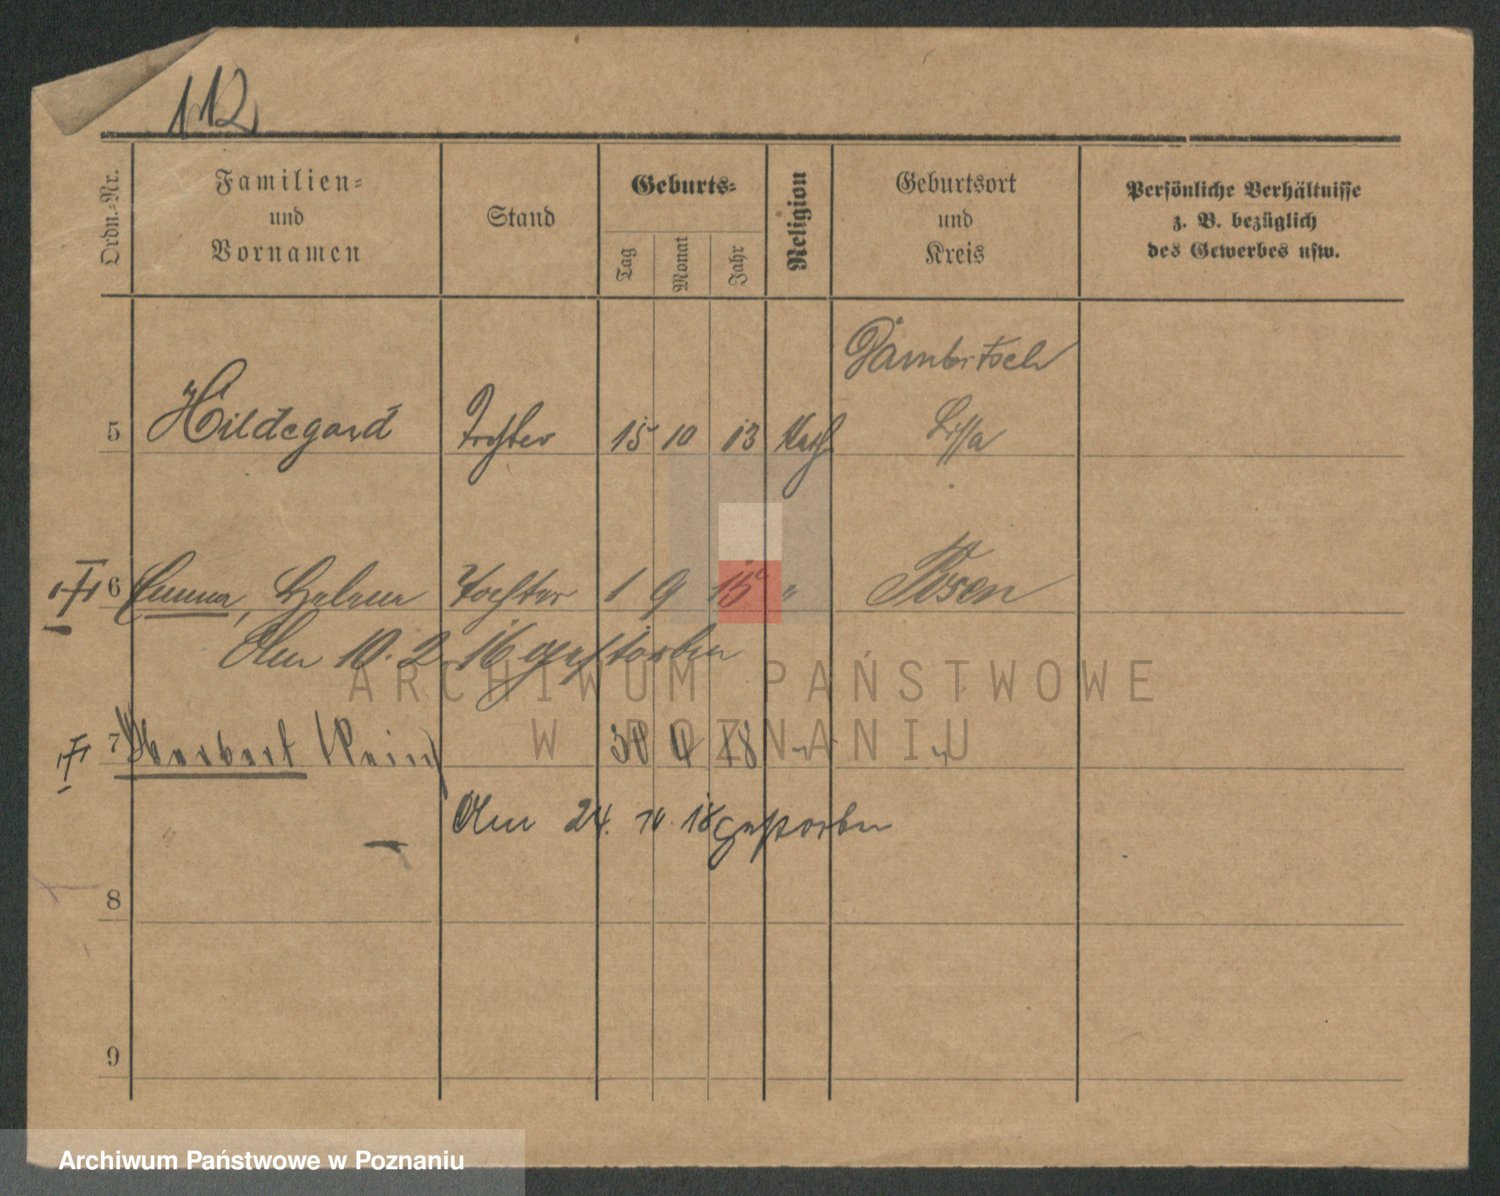 112
Ordn.-Nr.
Familien-
und
Vornamen
Stand
Geburts-
Tag
Monat
Jahr
Religion
Geburtsort
und
Kreis
Persönliche Verhältnisse
z. B. bezüglich
des Gewerbes usw.
Dambitsch
5 Hildegard Tochter 15 10 13 Kath Lissa
6 Emma, Helene Tochter 1 9 15 " Posen
Am 10. 2. 16 gestorben
7 Herbert 30 4 18 " "
Am 24. 10. 18 gestorben
8
9
ARCHIWUM PAŃSTWOWE
W POZNANIU
Archiwum Państwowe w Poznaniu